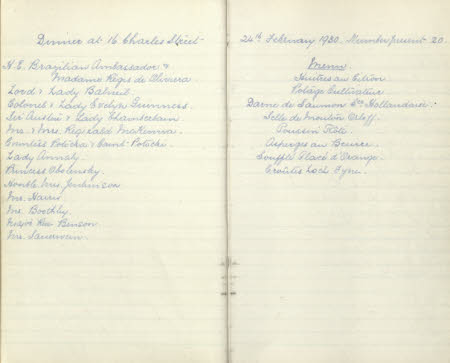 Dinner at 16 Charles Street
H.E. Brazilian Ambassador &
Madame Regis de Oliveira
Lord & Lady
Colonel & Lady Evelyn Guinness
Sir Austen & Lady Chamberlain
Mr. & Mrs. Reginald McKenna
Countess Potocka & Count Potocki
Lady Annaly
Princess Obolensky
Honble Mrs. Jenkinson
Mr. Harris
Mr. Boothby
Rex Benson
Mr. Sauerwein
24th February 1930. Number present 20.
Menu
Huitres au Citron
Potage Cultivateur
Darne de Saumon Sce Hollandaise
Selle de Mouton Orloff
Poussin Rôti
Asperges au Beurre
Souffle Placé d'Orange
Croûtes Loch Fyne